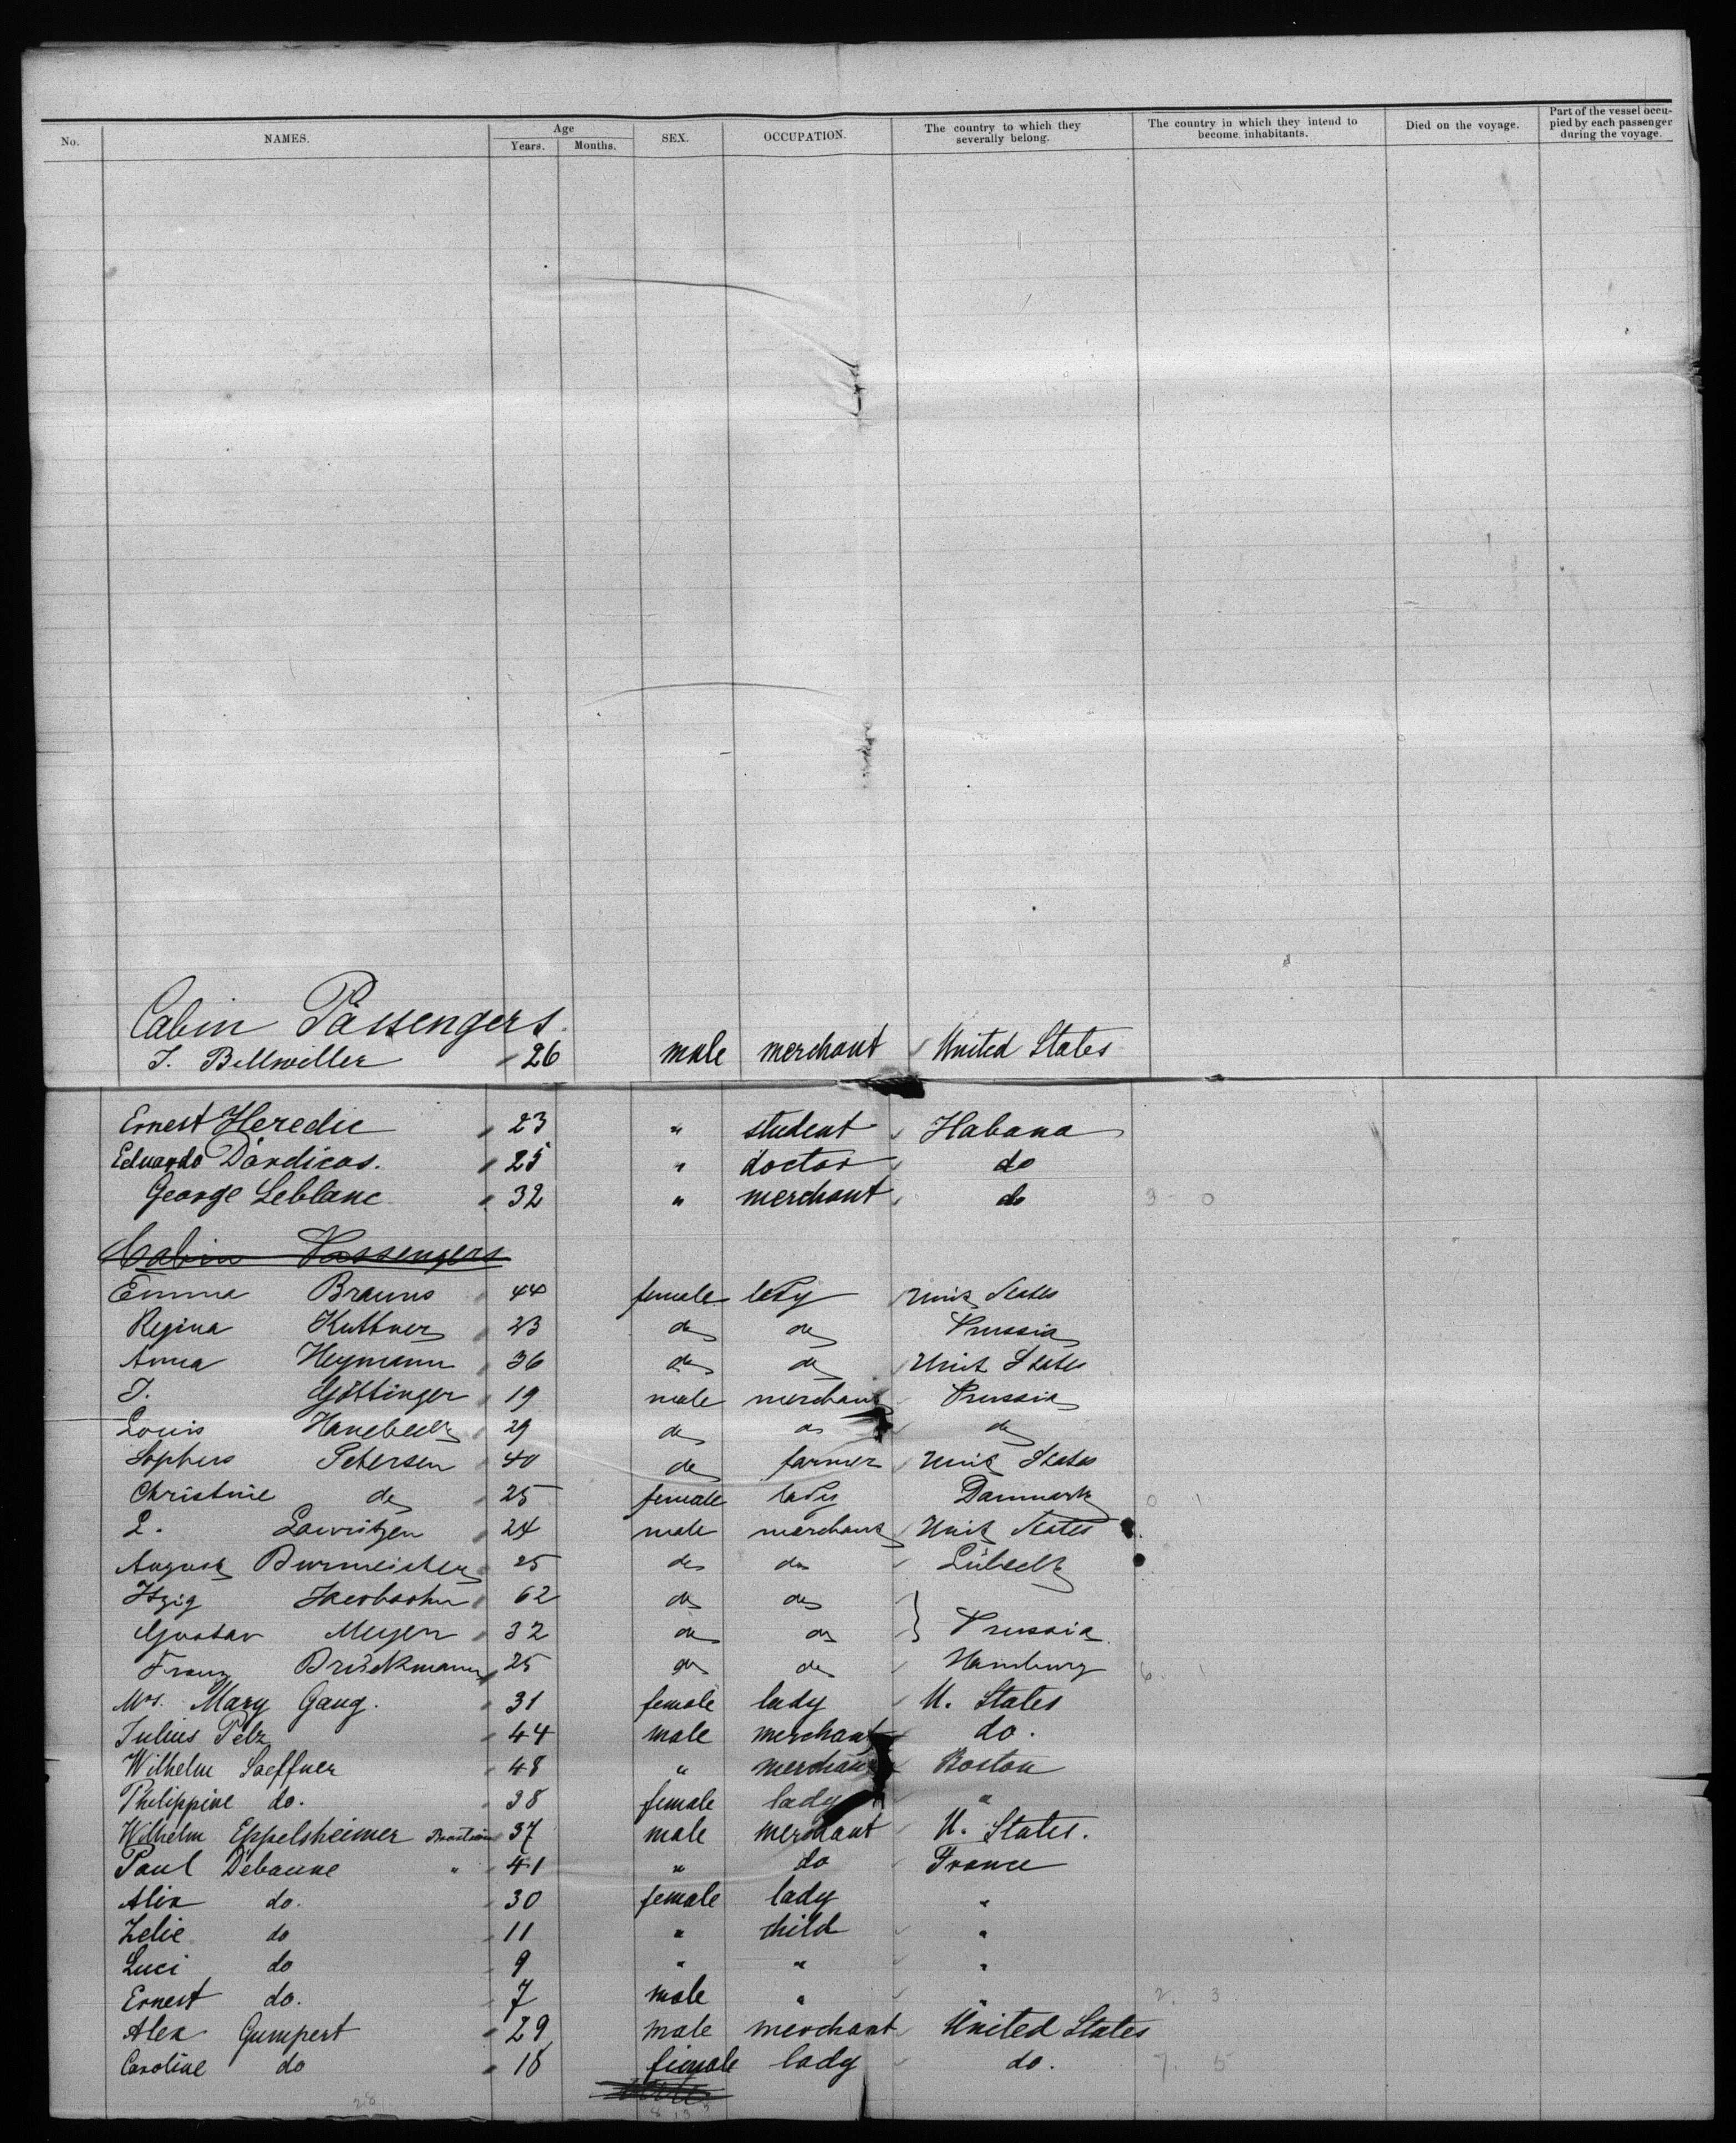 No. NAMES. Age Years. Months. SEX. OCCUPATION. The country to which they severally belong. The country in which they intend to become inhabitants. Died on the voyage. Part of the vessel occupied by each passenger during the voyage.
Cabin Passengers.
J. Bellwiller 26 male merchant United States
Ernest Heredie 23 " student Habana
Eduardo Dardicas. 25 " doctor do
George Leblanc 32 " merchant do 3 - 0
Cabin Passengers
Emma Brauns 44 female lady Unit States
Regina Kuttner 23 do do Prussia
Anna Heymann 36 do do Unit States
J. Göttinger 19 male merchant Prussia
Louis Hanebeck 29 do do do
Sophus Petersen 40 do farmer Unit States
Christine do 25 female lady Danmark 0 1
L. Lauritzen 24 male merchant Unit States
August Burmeister 25 do do Lübeck
Itzig 62 do do
Gustav Meyer 32 do do } Prussia
Franz Brückmann 25 do do Hamburg 6. 1
Mrs. Mary Gaug. 31 female lady U. States
Julius Pelz 44 male merchant do.
Wilhelm Saeffner 48 " merchant Boston
Philippine do. 38 female lady "
Wilhelm Eppelsheimer 37 male merchant U. States.
Paul Débanne " 41 " do France
Alix do. 30 female lady "
Zelie do 11 " child "
Luci do 9 " " "
Ernest do. 7 male " " 2. 3
Alex Gumpert 29 male merchant United States
Caroline do 18 female lady do. 7. 5
28